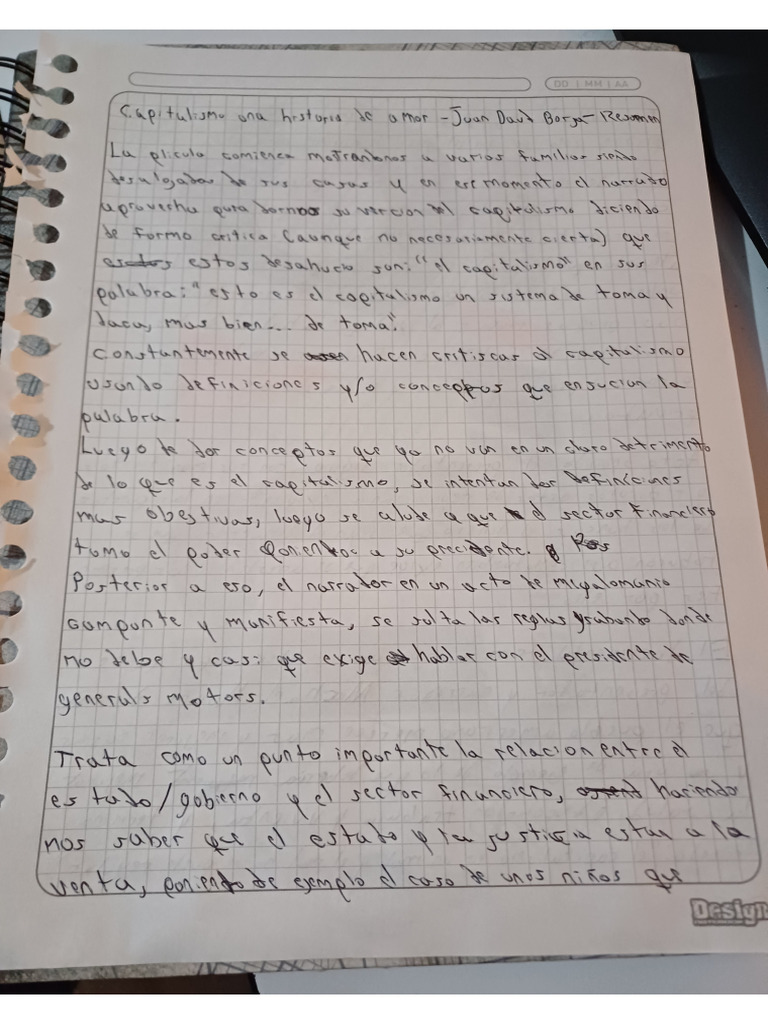 DD | MM | AA
Capitulismo una historia de amor - Juan David Borja - Resumen
La plicula comienza mostrandonos a varios familias siendo
desalojadas de sus casas y en ese momento el narrador
aprovecha para darnos su version del capitulismo diciendo
de forma critica (aunque no necesariamente cierta) que
estos desahucio son: "el capitalismo" en sus
palabra: "esto es el capitalismo un sistema de toma y
daca, mas bien... de toma".
Constantemente se hacen critiscas al capitalismo
usando definiciones y/o conceptos que ensucian la
palabra.
Luego de dar conceptos que ya no van en un claro detrimento
de lo que es el capitalismo, se intentan dar definiciones
mas obestivas, luego se alude a que el sector financiero
tomo el poder poniendo a su precidente.
Posterior a eso, el narrador en un acto de megalomania
componte y manifiesta, se salta las reglas grabando donde
no debe y casi que exige hablar con el presidente de
generals motors.
Trata como un punto importante la relacion entre el
estado/gobierno y el sector financiero, haciendo
nos saber que el estado y la justicia estan a la
venta, poniendo de ejemplo el caso de unos niños que
Design